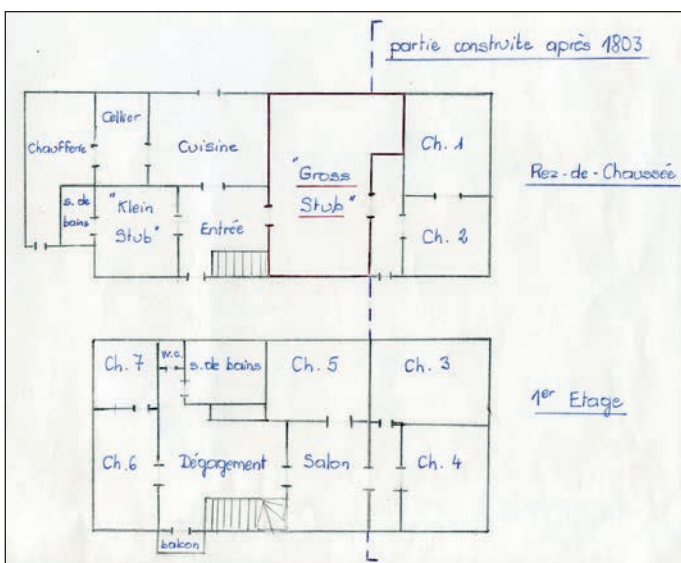 partie construite après 1803
Cellier
Chaufferie
Cuisine
Ch. 1
"Gross
Stub"
Rez-de-Chaussée
s. de
bains
"Klein
Stub"
Entrée
Ch. 2
Ch. 7
w.c.
s. de bains
Ch. 5
Ch. 3
1er Etage
Ch. 6
Dégagement
Salon
Ch. 4
balcon